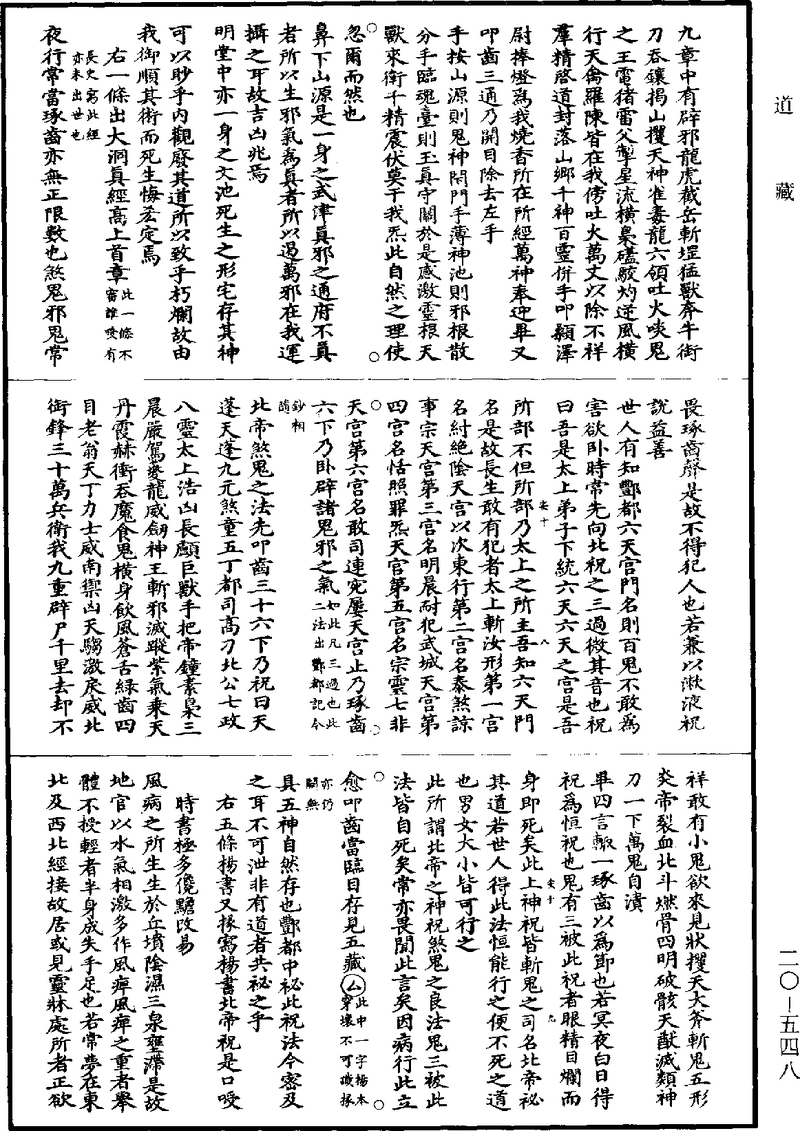 道藏
九章中有辟邪龍虎截岳斬堽猛獸奔牛銜
刀吞鑲揭山攫天神雀毒龍六領吐火啖鬼
之王電猪雷父掣星流橫梟磕駮灼逆風橫
行天禽羅陳皆在我傍吐火萬丈以除不祥
羣精啓道封落山鄉千神百靈併手叩顙澤
尉捧燈爲我燒香所在所經萬神奉迎畢又
叩齒三通乃開目除去左手
手按山源則鬼神閉門手薄神池則邪根散
分手臨魂臺則玉真守關於是感激靈根天
獸來衛千精震伏莫干我炁此自然之理使
忽爾而然也
鼻下山源是一身之武津真邪之通府不真
者所以生邪氣爲真者所以遏萬邪在我運
攝之耳故吉凶兆焉
明堂中亦一身之文池死生之形宅存其神
可以眇乎内觀廢其道所以致乎朽爛故由
我御順其術而死生悔吝定焉
右一條出大洞真經高上首章此一條不審誰唛有
長史寫此經亦未出世也
夜行常當琢齒亦無正限數也煞鬼邪鬼常
畏琢齒聲是故不得犯人也若兼以漱液祝
説益善
世人有知酆都六天宮門名則百鬼不敢爲
害欲卧時常先向北祝之三過微其音也祝
曰吾是太上弟子下統六天六天之宮是吾
所部不但所部乃太上之所主吾知六天門
名是故長生敢有犯者太上斬汝形第一宮
名紂絶陰天宮以次東行第二宮名泰煞諒
事宗天宮第三宮名明晨耐犯武城天宮第
四宮名恬照罪炁天宮第五宮名宗靈七非
天宮第六宮名敢司連宛屢天宮止乃琢齒
六下乃卧辟諸鬼邪之氣如此凡三過也此二法出酆都記今
鈔相隨
北帝煞鬼之法先叩齒三十六下乃祝曰天
蓬天蓬九元煞童五丁都司高刀北公七政
八靈太上浩凶長顱巨獸手把帝鐘素梟三
晨嚴駕夔龍威劍神王斬邪滅蹤紫氣乘天
丹霞赫衝吞魔食鬼橫身飲風蒼舌綠齒四
目老翁天丁力士威南禦凶天騶激戾威北
銜鋒三十萬兵衛我九重辟尸千里去却不
祥敢有小鬼欲來見狀攫天大斧斬鬼五形
炎帝裂血北斗燃骨四明破骸天猷滅類神
刀一下萬鬼自潰
畢四言輙一琢齒以爲節也若冥夜白日得
祝爲恒祝也鬼有三被此祝者眼精目爛而
身即死矣此上神祝皆斬鬼之司名北帝祕
其道若世人得此法恒能行之便不死之道
也男女大小皆可行之
此所謂北帝之神祝煞鬼之良法鬼三被此
法皆自死矣常亦畏聞此言矣因病行此立
愈叩齒當臨目存見五藏㕕此中一字楊本穿壞不可識掾
亦仍闕無
具五神自然存也酆都中祕此祝法今密及
之耳不可泄非有道者共祕之乎
右五條楊書又掾寫楊書北帝祝是口唛
時書極多儳黵改易
風病之所生生於丘墳陰濕三泉壅滯是故
地官以水氣相激多作風痺風痺之重者舉
體不授輕者半身成失手足也若常夢在東
北及西北經接故居或見靈牀處所者正欲
二〇—五四八